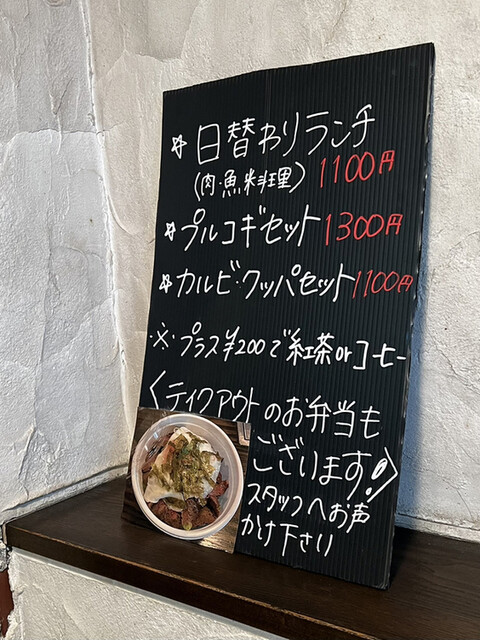 ☆ 日替わりランチ
(肉・魚料理) 1100円
☆ プルコギセット 1300円
☆ カルビ・クッパセット 1100円
※ プラス¥200で紅茶orコーヒー
〈テイクアウトのお弁当も
ございます!〉
スタッフへお声
かけ下さい